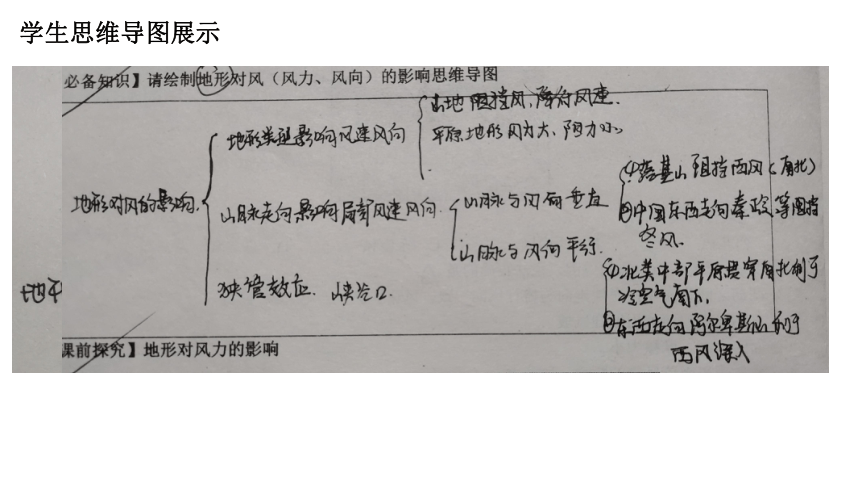 学生思维导图展示
必备知识】请绘制地形对风（风力、风向）的影响思维导图
山地阻挡风，降行风速.
地形类型影响风速风向
平原地形风力大、阻力小
①落基山阻挡西风（南北）
地形对风的影响
山脉走向影响局部风速风向.
山脉与风向垂直
②中国东西走向秦岭等阻挡
冬风.
山脉与风向平行.
①北美中部平原贯穿南北利于
冷空气南下.
狭管效应. 峡谷口.
地形
②东西走向阿尔卑斯山利于
西风深入
课前探究】地形对风力的影响